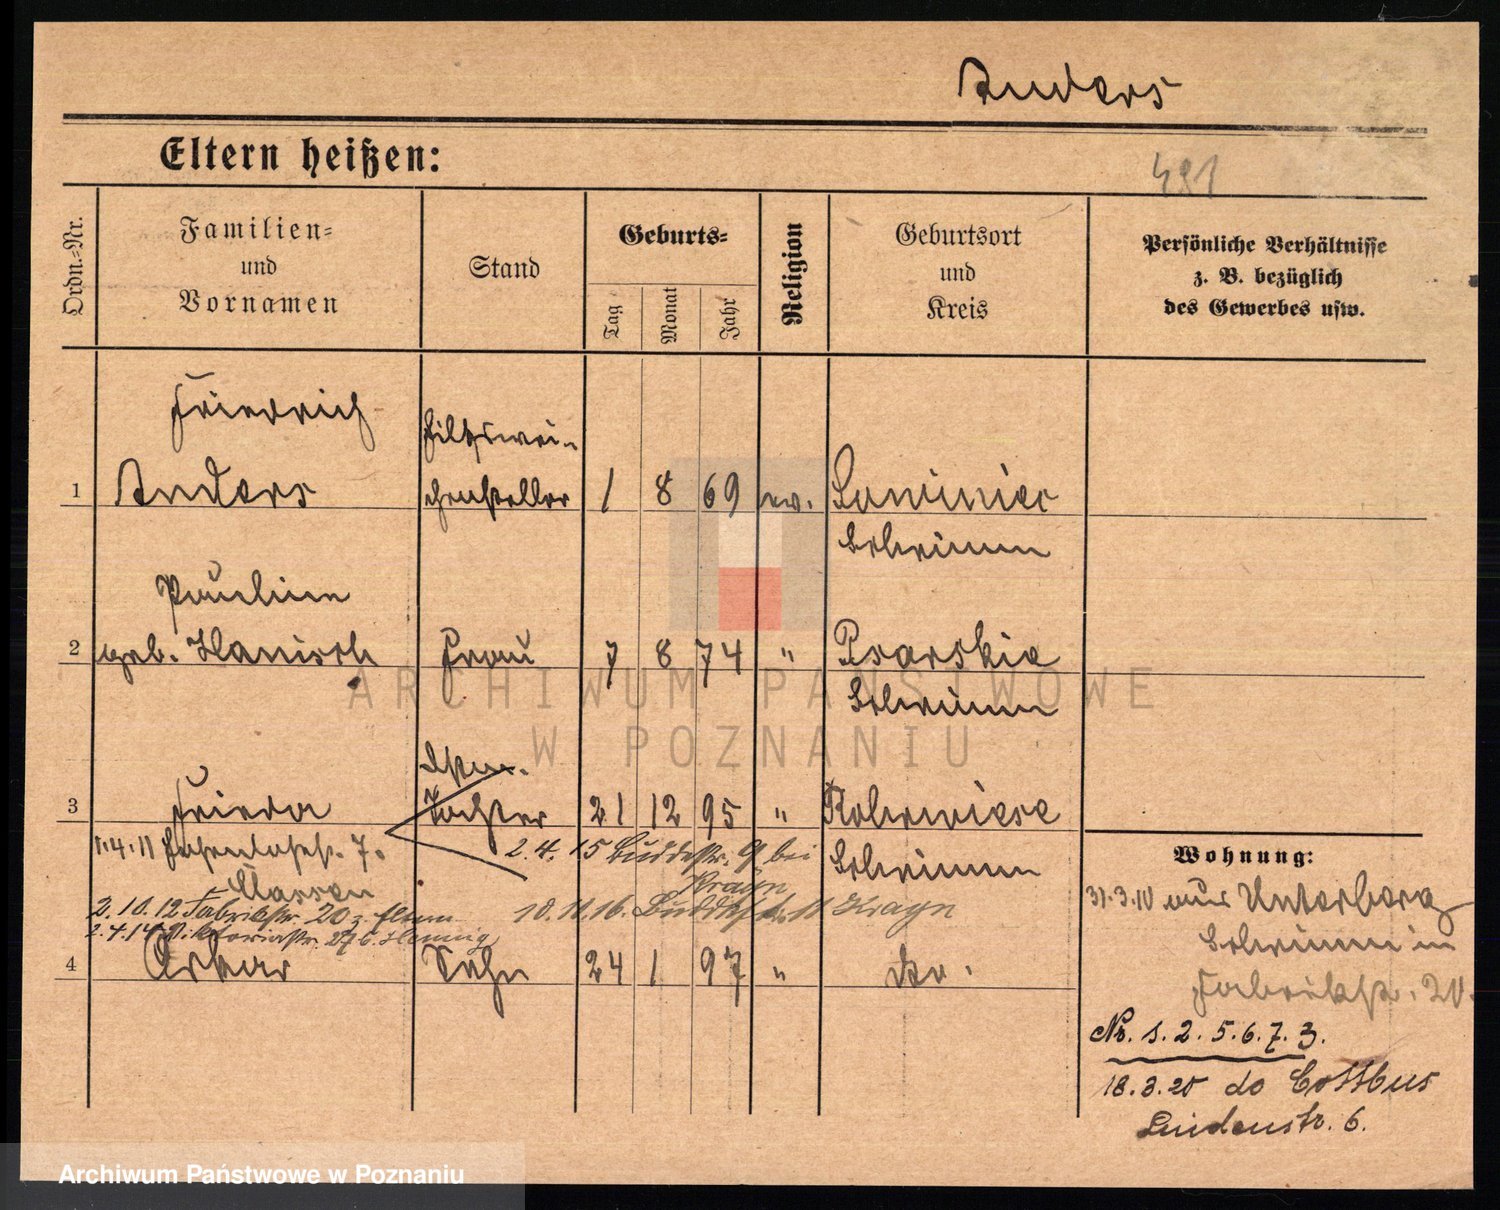 Anders
Eltern heißen:
481
Ordn.-Nr.
Familien-
und
Vornamen
Stand
Geburts-
Tag
Monat
Jahr
Religion
Geburtsort
und
Kreis
Persönliche Verhältnisse
z. B. bezüglich
des Gewerbes usw.
Friedrich
Hilfswei-
1 Anders chensteller 1 8 69 ev. Lawiniec
Schrimm
Pauline
2 geb. Hanisch Frau 7 8 74 " Psarskie
Schrimm
3 Frieda Tochter 21 12 95 "
1.4.11 7.
2.4.15 Buddestr. 9 bei
Krayn
Schrimm
2.10.12 Fabrikstr. 20 z. Eltern
10.11.16. Buddestr. 11 Krayn
2.4.14 Viktoriastr. 27 b. Hennig
4 Oskar Sohn 24 1 97 " do.
Wohnung:
31.3.10 aus Unterberg
Schrimm in
Fabrikstr. 20.
Nr. 1. 2. 5. 6. 7. 3.
18.3.20 do Cottbus
Lindenstr. 6.
ARCHIWUM PAŃSTWOWE
W POZNANIU
Archiwum Państwowe w Poznaniu